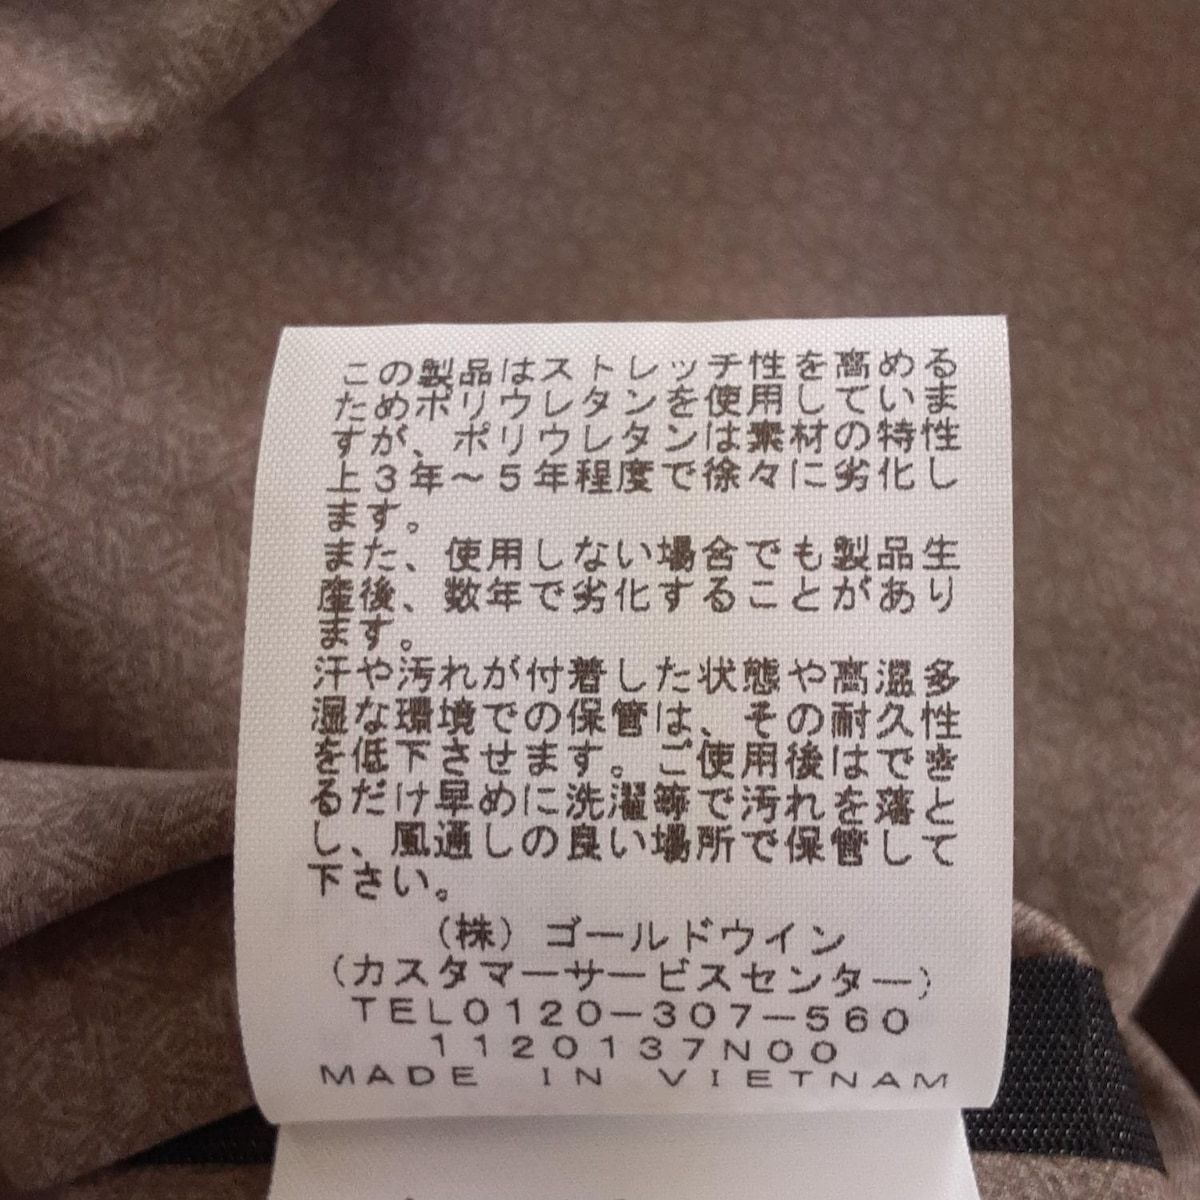 この製品はストレッチ性を高める
ためポリウレタンを使用していま
すが、ポリウレタンは素材の特性
上3年～5年程度で徐々に劣化し
ます。
また、使用しない場合でも製品生
産後、数年で劣化することがあり
ます。
汗や汚れが付着した状態や高温多
湿な環境での保管は、その耐久性
を低下させます。ご使用後はでき
るだけ早めに洗濯等で汚れを落と
し、風通しの良い場所で保管して
下さい。
(株)ゴールドウイン
(カスタマーサービスセンター)
TEL0120-307-560
1120137N00
MADE IN VIETNAM